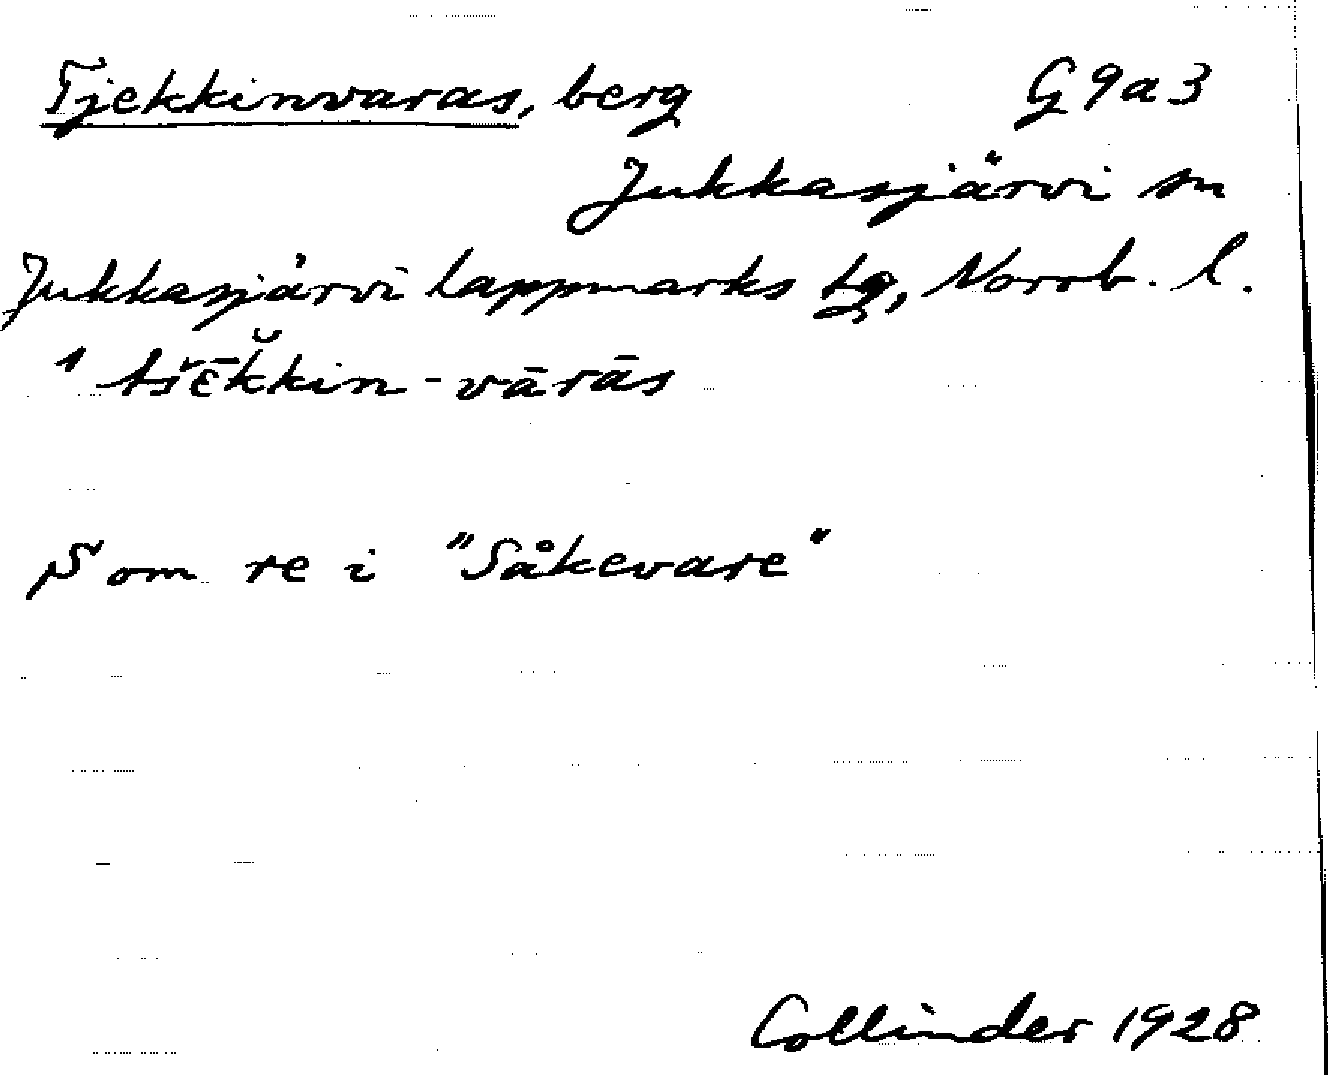 Tjekkinvaras, berg G 9 a 3
Jukkasjärvi sn
Jukkasjärvi lappmarks tg, Norrb. l.
1 tšɛ̄k̆kin-vārās
Som re i "Såkevare"
Collinder 1928